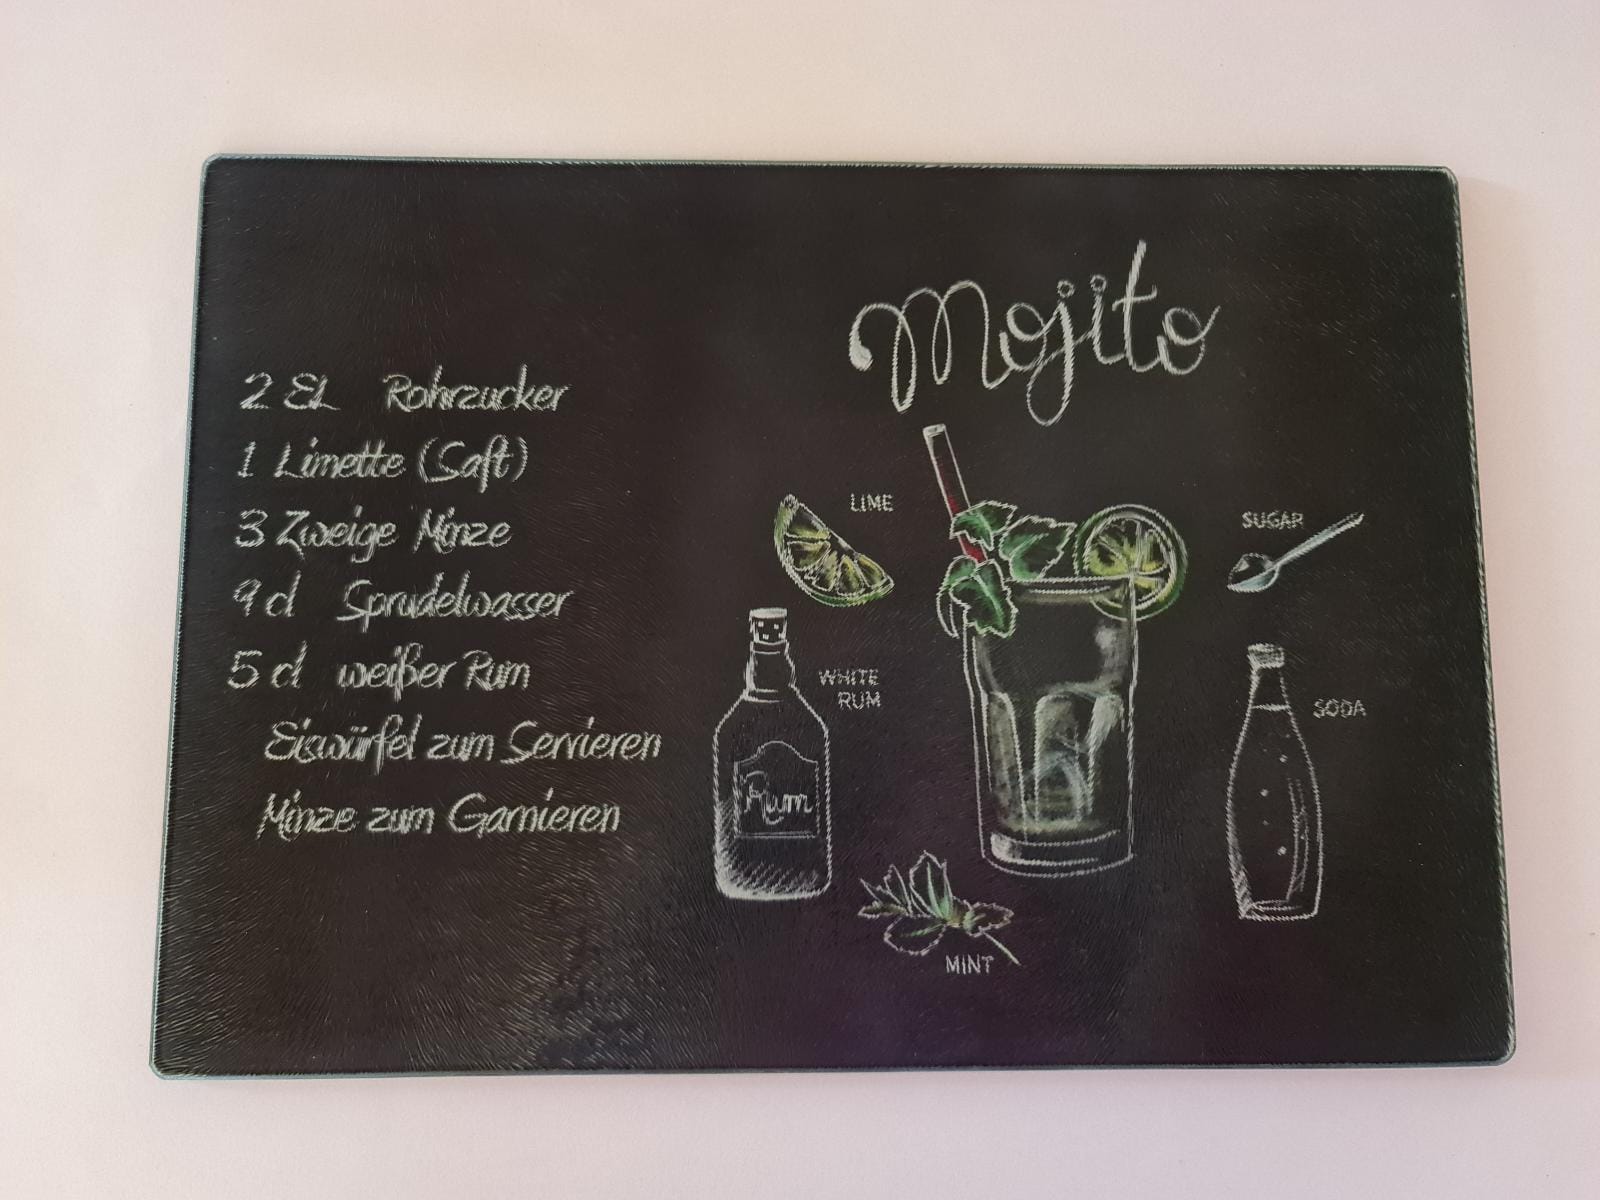 Mojito
2 EL Rohrzucker
1 Limette (Saft)
3 Zweige Minze
9 cl Sprudelwasser
5 cl weißer Rum
Eiswürfel zum Servieren
Minze zum Garnieren
LIME
SUGAR
WHITE
RUM
SODA
Rum
MINT